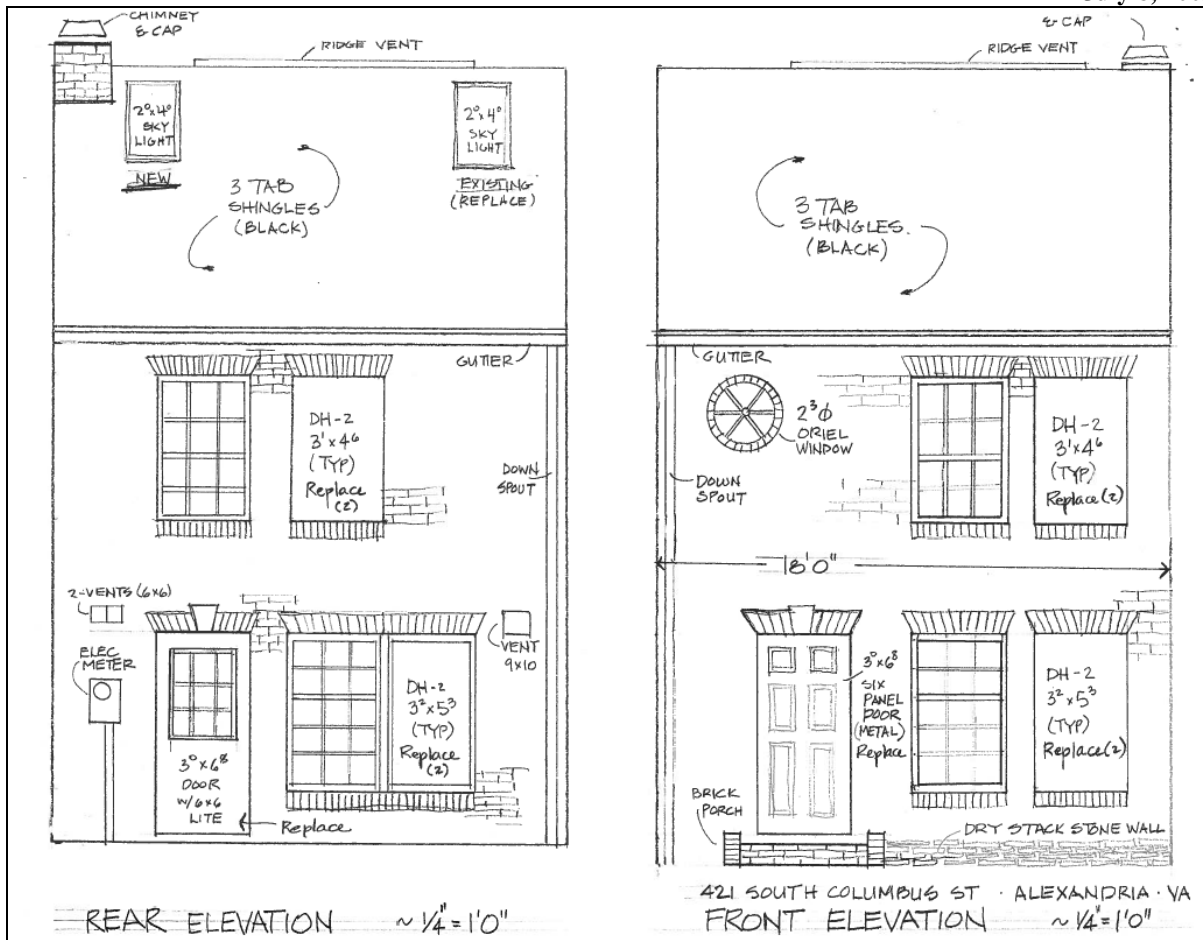 CHIMNEY
& CAP
RIDGE VENT
2⁰x4⁰
SKY
LIGHT
NEW
2⁰x4⁰
SKY
LIGHT
EXISTING
(REPLACE)
3 TAB
SHINGLES
(BLACK)
GUTTER
DH-2
3'x4⁶
(TYP)
Replace
(2)
DOWN
SPOUT
2-VENTS (6x6)
ELEC
METER
VENT
9x10
DH-2
3²x5³
(TYP)
Replace
(2)
3⁰x6⁸
DOOR
W/6x6
LITE
Replace
REAR ELEVATION ~1/4"=1'0"
& CAP
RIDGE VENT
3 TAB
SHINGLES.
(BLACK)
GUTTER
2³Φ
ORIEL
WINDOW
DOWN
SPOUT
DH-2
3'x4⁶
(TYP)
Replace(2)
18'0"
3⁰x6⁸
SIX
PANEL
DOOR
(METAL)
Replace
DH-2
3²x5³
(TYP)
Replace(2)
BRICK
PORCH
DRY STACK STONE WALL
421 SOUTH COLUMBUS ST · ALEXANDRIA · VA
FRONT ELEVATION ~1/4"=1'0"